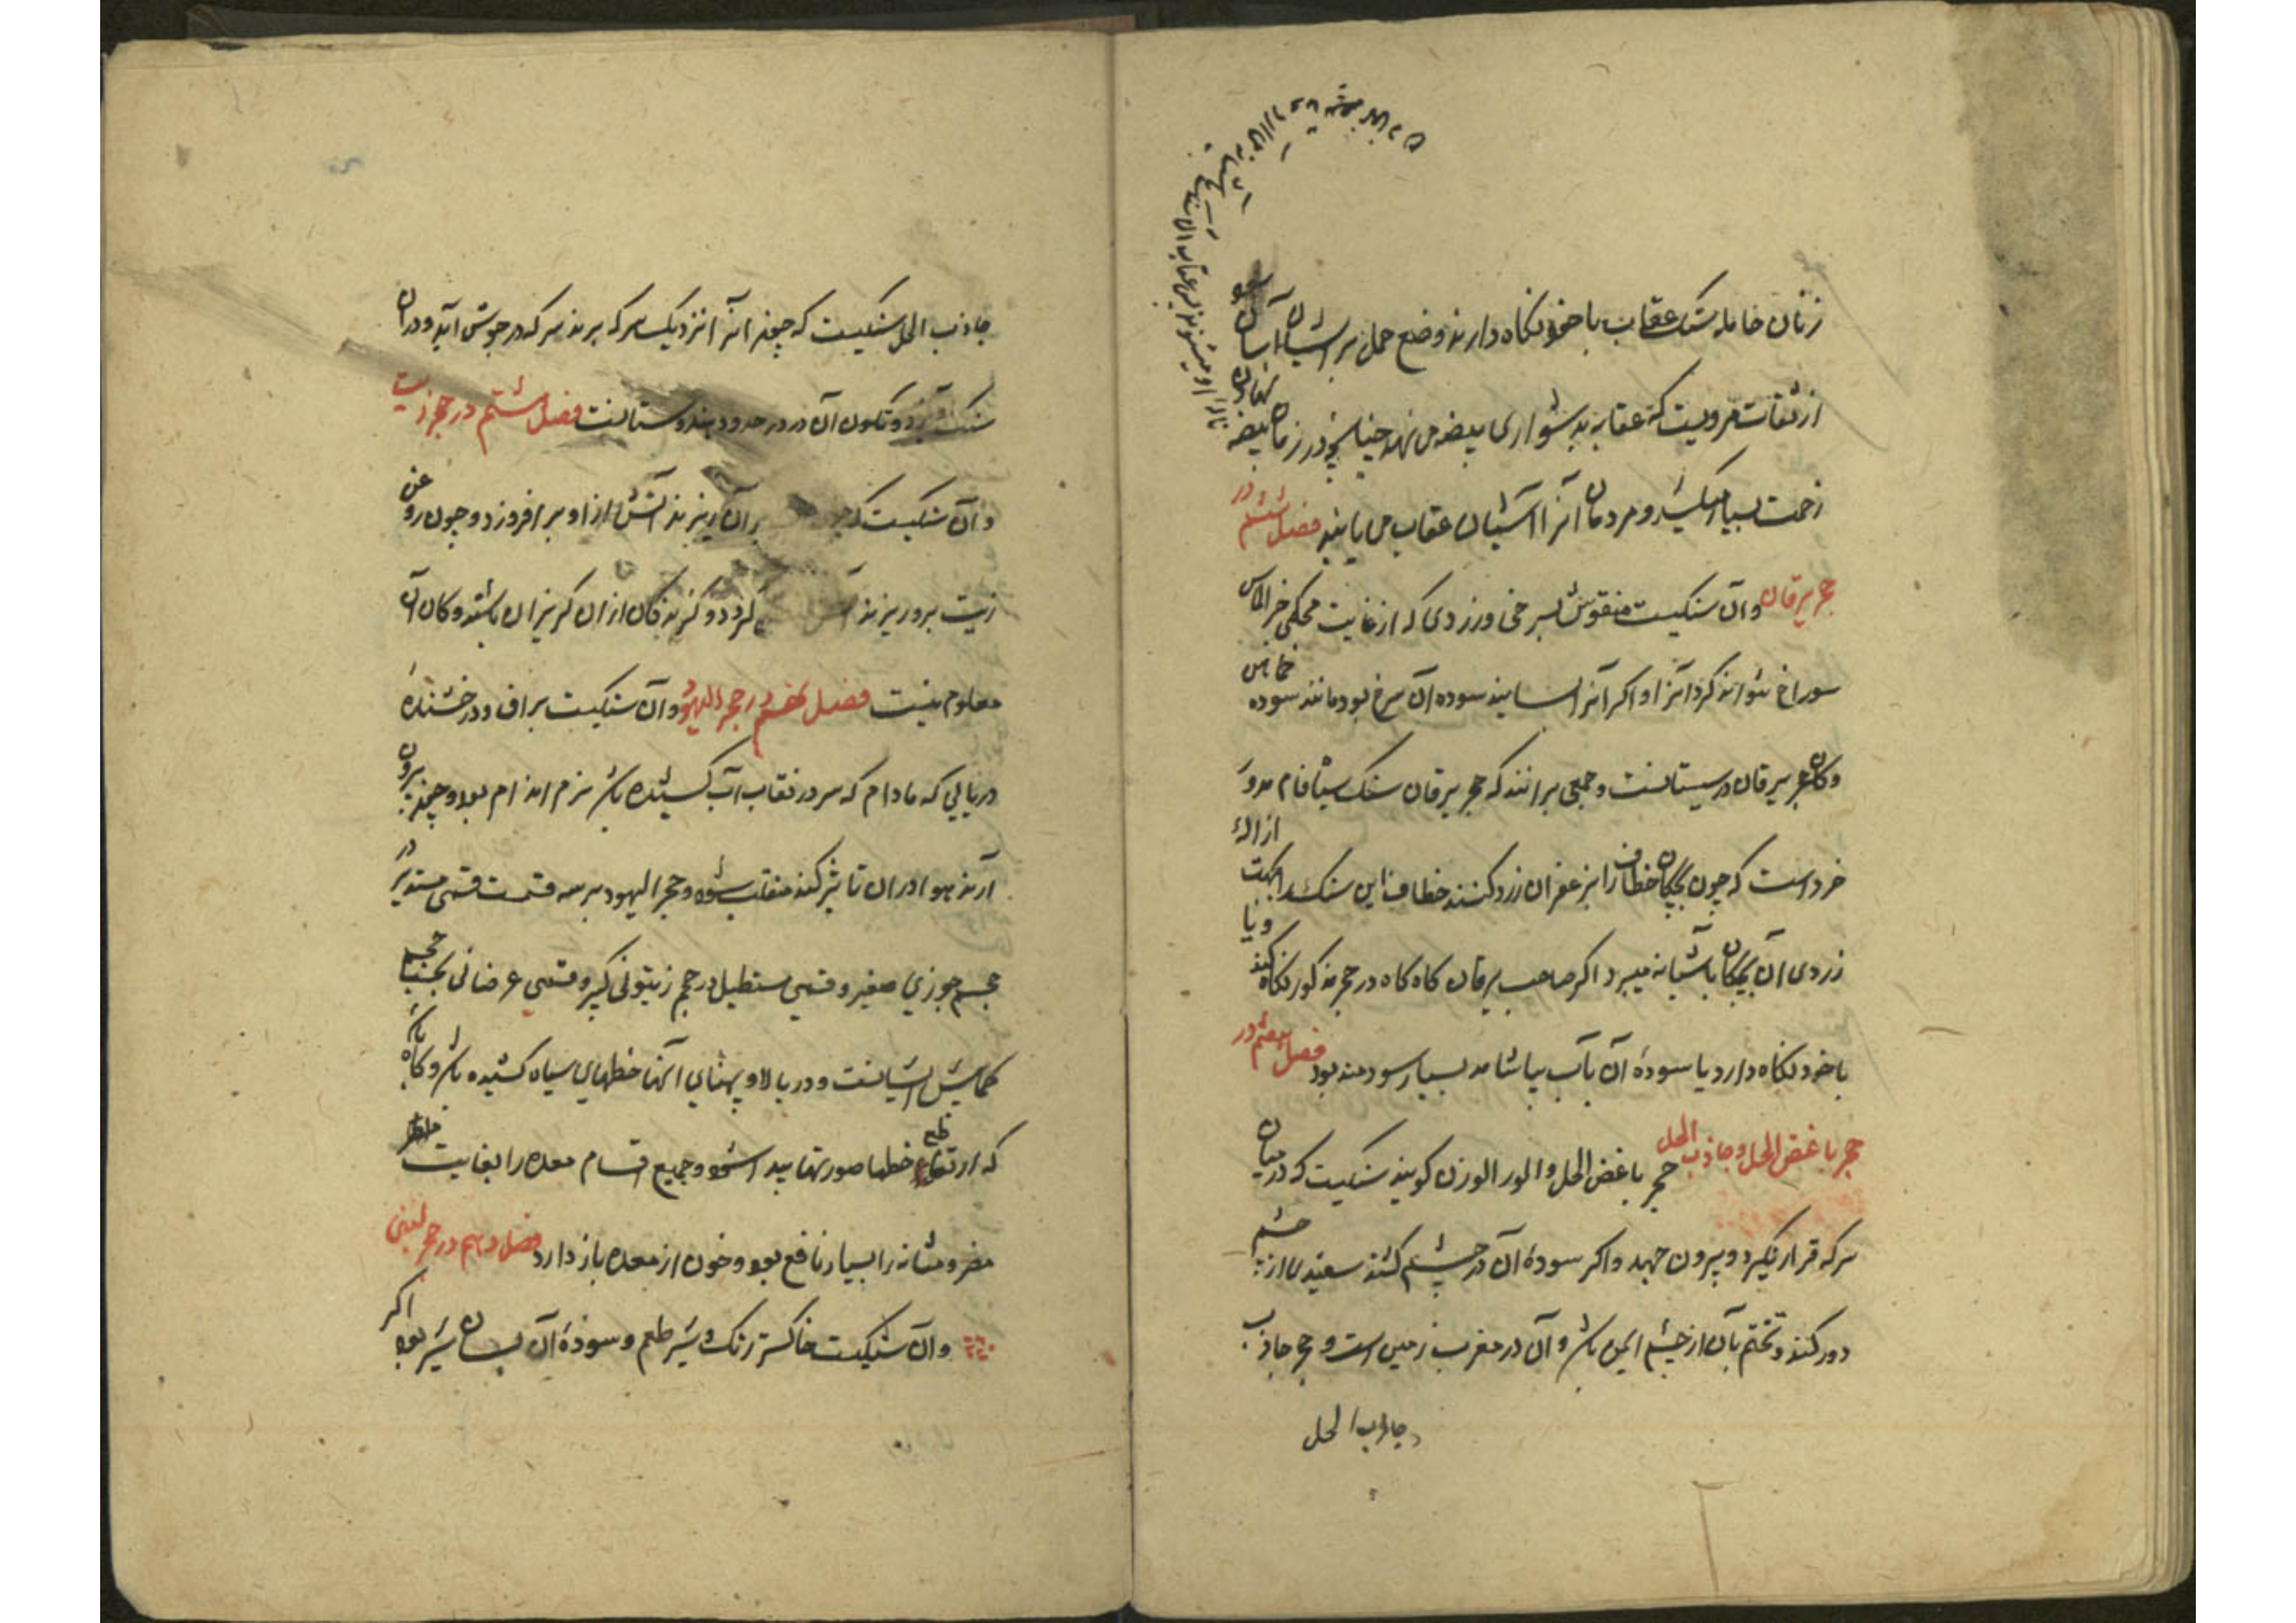 زنان حامله سنک عقاب با خود نکاه دارند وضع حمل بر ایشان آسان شود
از ثقات مرویست که عقاب بدشواری بیضه می نهد چنانچه در زمان بیضه نهادن
زحمت بسیار میکشد و مردمان آنرا از آشیان عقاب می یابند فصل ششم در
حجر یرقان وآن سنکیست منقوش بسرخی وزردی که از غایت محکمی جز الماس
سوراخ نتواند کرد آنرا و اکر آنرا بسایند سوده آن سرخ بود مانند سوده خماهن
وکان حجر یرقان در سیستانست وجمعی برانند که حجر یرقان سنک سیاه فام مدور
خرد است که چون بچکان خطاف را بزعفران زرد کنند خطاف این سنک را بجهت ازاله
زردی آن بچکان باشیانه میبرد اکر صاحب یرقان کاه کاه در حجر مذکور نکاه کند ویا
با خود نکاه دارد یا سوده آن بآب بیاشامد بسیار سودمند بود فصل هفتم در
حجر باغض الخل وجاذب الخل حجر باغض الخل والور الوزن کویند سنکیست که درمیان
سرکه قرار نکیرد و بیرون جهد واکر سوده آن در چشم کشند سفیدی از چشم
دور کند وتختم بآن از چشم ایمن باشد و آن در مغرب زمین است و حجر جاذب
جاذب الخل
جاذب الخل سنکیست که چون آنرا نزدیک سرکه برند سرکه در جوش آید ودران
سنک آویزد وتکون آن در حدود هندوستانست فصل هشتم در حجر زیت
وآن سنکیست که بر آن ریزند آتش از او بر افروزد وچون روغن
زیت برو ریزند کردد وکزندکان ازان کریزان باشند وکان آن
معلوم نیست فصل نهم در حجر الیهود وآن سنکیست براق ودرخشنده
دریایی که مادام که سر در نقاب آب کشیده باشد نرم اندام بود وچون بیرون
آرند هوا دران تاثیر کند منقلب شود وحجر الیهود بر سه قسمت قسمی مستدیر در
حجم جوزی صغیر وقسمی مستطیل در حجم زیتونی کبیر وقسمی عرضانی
کمابیش ایشانست ودر بالا وپهنای آنها خطهای سیاه کشیده باشد وکاه باشد
که از تقاطع خطها صورتها پیدا شود وجمیع اقسام معده را بغایت
مضر ومثانه را بسیار نافع بود وخون از معده باز دارد فصل دهم در حجر لبنی
وآن سنکیست خاکستر رنک وشیر طعم وسوده آن بسان شیر بود اکر